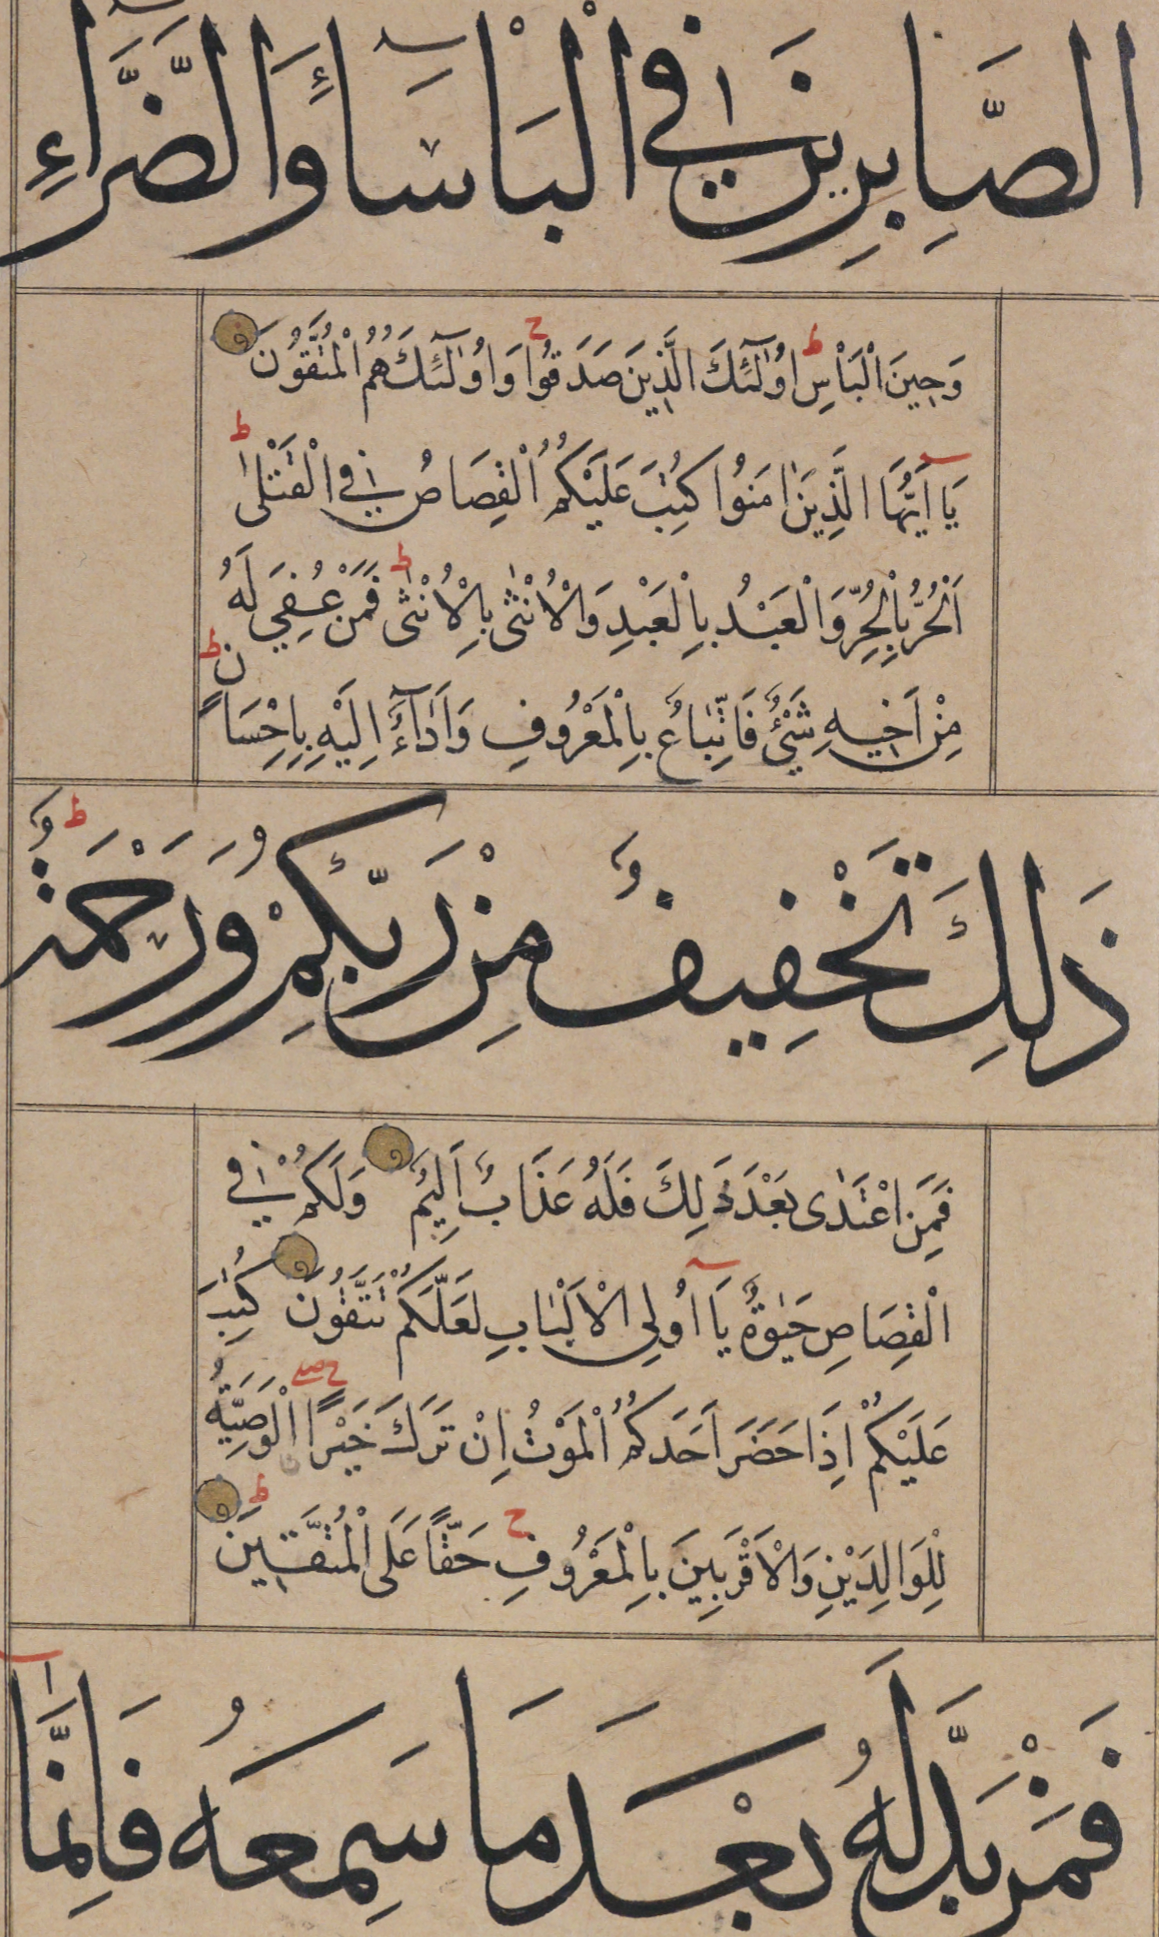 الصَّابِرِينَ فِي الْبَأْسَاءِ وَالضَّرَّاءِ
وَحِينَ الْبَأْسِ ط اُولٰٓئِكَ الَّذِينَ صَدَقُوا ج وَاُولٰٓئِكَ هُمُ الْمُتَّقُونَ
يَا أَيُّهَا الَّذِينَ اٰمَنُوا كُتِبَ عَلَيْكُمُ الْقِصَاصُ فِي الْقَتْلٰى ط
اَلْحُرُّ بِالْحُرِّ وَالْعَبْدُ بِالْعَبْدِ وَالْاُنْثٰى بِالْاُنْثٰى ط فَمَنْ عُفِيَ لَهُ
مِنْ اَخِيهِ شَيْءٌ فَاتِّبَاعٌ بِالْمَعْرُوفِ وَاَدَآءٌ اِلَيْهِ بِاِحْسَانٍ ط
ذَلِكَ تَخْفِيفٌ مِنْ رَبِّكُمْ وَرَحْمَةٌ ط
فَمَنِ اعْتَدٰى بَعْدَ ذَلِكَ فَلَهُ عَذَابٌ اَلِيمٌ وَلَكُمْ فِي
الْقِصَاصِ حَيٰوةٌ يَا اُولِي الْاَلْبَابِ لَعَلَّكُمْ تَتَّقُونَ كُتِبَ
عَلَيْكُمْ اِذَا حَضَرَ اَحَدَكُمُ الْمَوْتُ اِنْ تَرَكَ خَيْرًا الْوَصِيَّةُ
لِلْوَالِدَيْنِ وَالْاَقْرَبِينَ بِالْمَعْرُوفِ ج حَقًّا عَلَى الْمُتَّقِينَ ط
فَمَنْ بَدَّلَهُ بَعْدَ مَا سَمِعَهُ فَاِنَّمَا